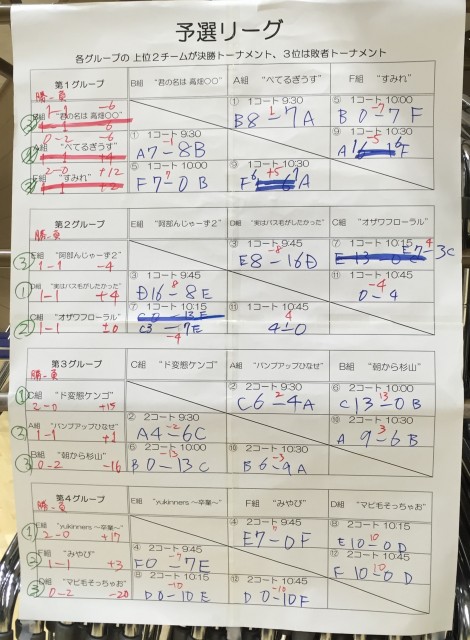 予選リーグ
各グループの 上位２チームが決勝トーナメント、３位は敗者トーナメント
第１グループ B組 "君の名は 高畑〇〇" A組 "べてるぎうす" F組 "すみれ"
勝-負
1-1 -6
B組 "君の名は 高畑〇〇"
① 1コート 9:30
B8-7A
1
⑤ 1コート 10:00
B0-7F
-7
0-2 -6
A組 "べてるぎうす"
① 1コート 9:30
A7-8B
-1
⑨ 1コート 10:30
2-0 +12
"すみれ"
⑤ 1コート 10:00
F7-0B
7
第２グループ E組 "阿部んじゃーず２" D組 "実はバス毛がしたかった" C組 "オザワフローラル"
勝-負
③ E組 "阿部んじゃーず２"
1-1 -4
③ 1コート 9:45
E8-16D
-8
⑦ 1コート 10:15
E7-3C
4
① D組 "実はバス毛がしたかった"
1-1 +4
③ 1コート 9:45
D16-8E
8
⑪ 1コート 10:45
0-4
-4
② C組 "オザワフローラル"
1-1 ±0
⑦ 1コート 10:15
C3-7E
-4
⑪ 1コート 10:45
4-0
4
第３グループ C組 "ド変態ケンゴ" A組 "パンプアップひなぜ" B組 "朝から杉山"
勝-負
① C組 "ド変態ケンゴ"
2-0 +15
② 2コート 9:30
C6-4A
2
⑥ 2コート 10:00
C13-0B
13
② A組 "パンプアップひなぜ"
1-1 +1
② 2コート 9:30
A4-6C
-2
⑩ 2コート 10:30
A 9-6B
3
③ B組 "朝から杉山"
0-2 -16
⑥ 2コート 10:00
B 0-13C
-13
⑩ 2コート 10:30
B 6-9A
-3
第４グループ E組 "yukinners ～卒業～" F組 "みやび" D組 "マビ毛そっちゃお"
勝-負
① E組 "yukinners ～卒業～"
2-0 +17
④ 2コート 9:45
E7-0F
7
⑧ 2コート 10:15
E10-0D
10
② F組 "みやび"
1-1 +3
④ 2コート 9:45
F0-7E
-7
⑫ 2コート 10:45
F10-0D
10
③ D組 "マビ毛そっちゃお"
0-2 -20
⑧ 2コート 10:15
D0-10E
-10
⑫ 2コート 10:45
D 0-10F
-10